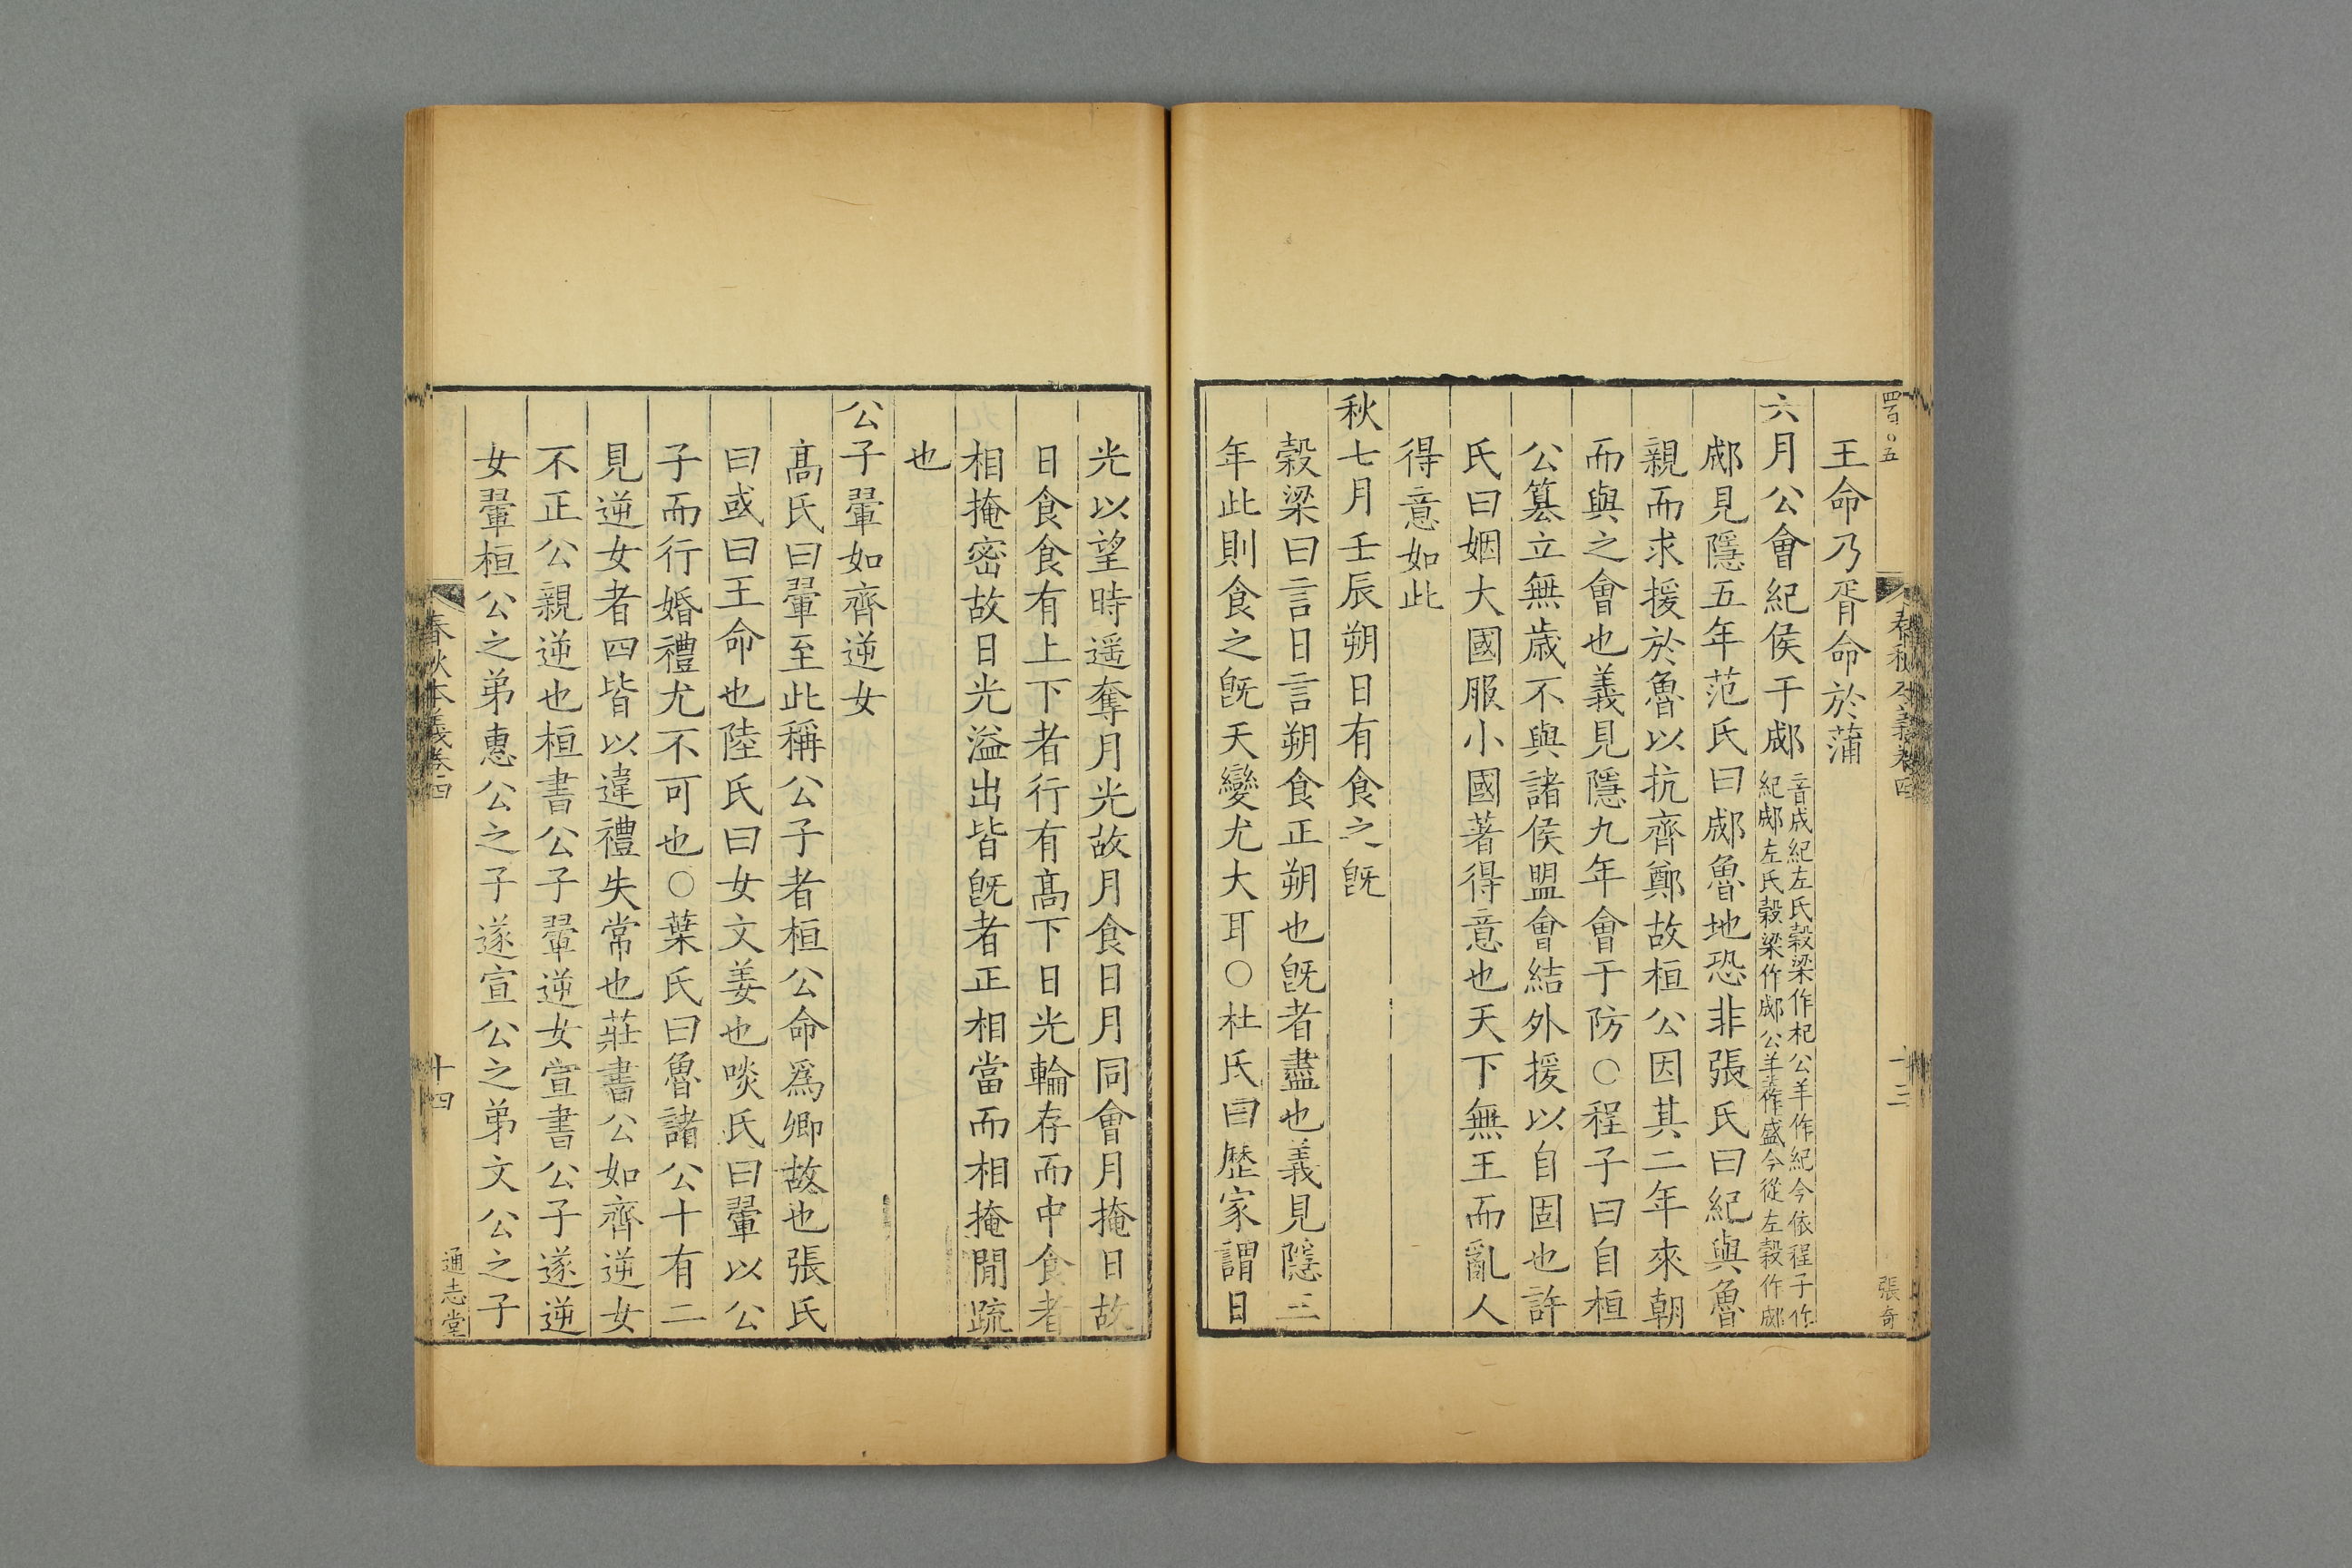 四百〇五
春秋本義卷四
十三
張奇
王命乃胥命於蒲
六月公會紀侯于郕
音成紀左氏榖梁作杞公羊作紀今依程子作
紀郕左氏榖梁作郕公羊作盛今從左榖作郕
郕見隱五年范氏曰郕魯地恐非張氏曰紀與魯
親而求援於魯以抗齊鄭故桓公因其二年來朝
而與之會也義見隱九年會于防○程子曰自桓
公簒立無歲不與諸侯盟會結外援以自固也許
氏曰姻大國服小國著得意也天下無王而亂人
得意如此
秋七月壬辰朔日有食之旣
榖梁曰言日言朔食正朔也旣者盡也義見隱三
年此則食之旣天變尤大耳○杜氏曰歴家謂日
光以望時遥奪月光故月食日月同會月掩日故
日食食有上下者行有髙下日光輪存而中食者
相掩密故日光溢出皆旣者正相當而相掩閒疏
也
公子翬如齊逆女
髙氏曰翬至此稱公子者桓公命爲卿故也張氏
曰或曰王命也陸氏曰女文姜也啖氏曰翬以公
子而行婚禮尤不可也○葉氏曰魯諸公十有二
見逆女者四皆以違禮失常也莊書公如齊逆女
不正公親逆也桓書公子翬逆女宣書公子遂逆
女翬桓公之弟惠公之子遂宣公之弟文公之子
春秋本義卷四
十四
通志堂